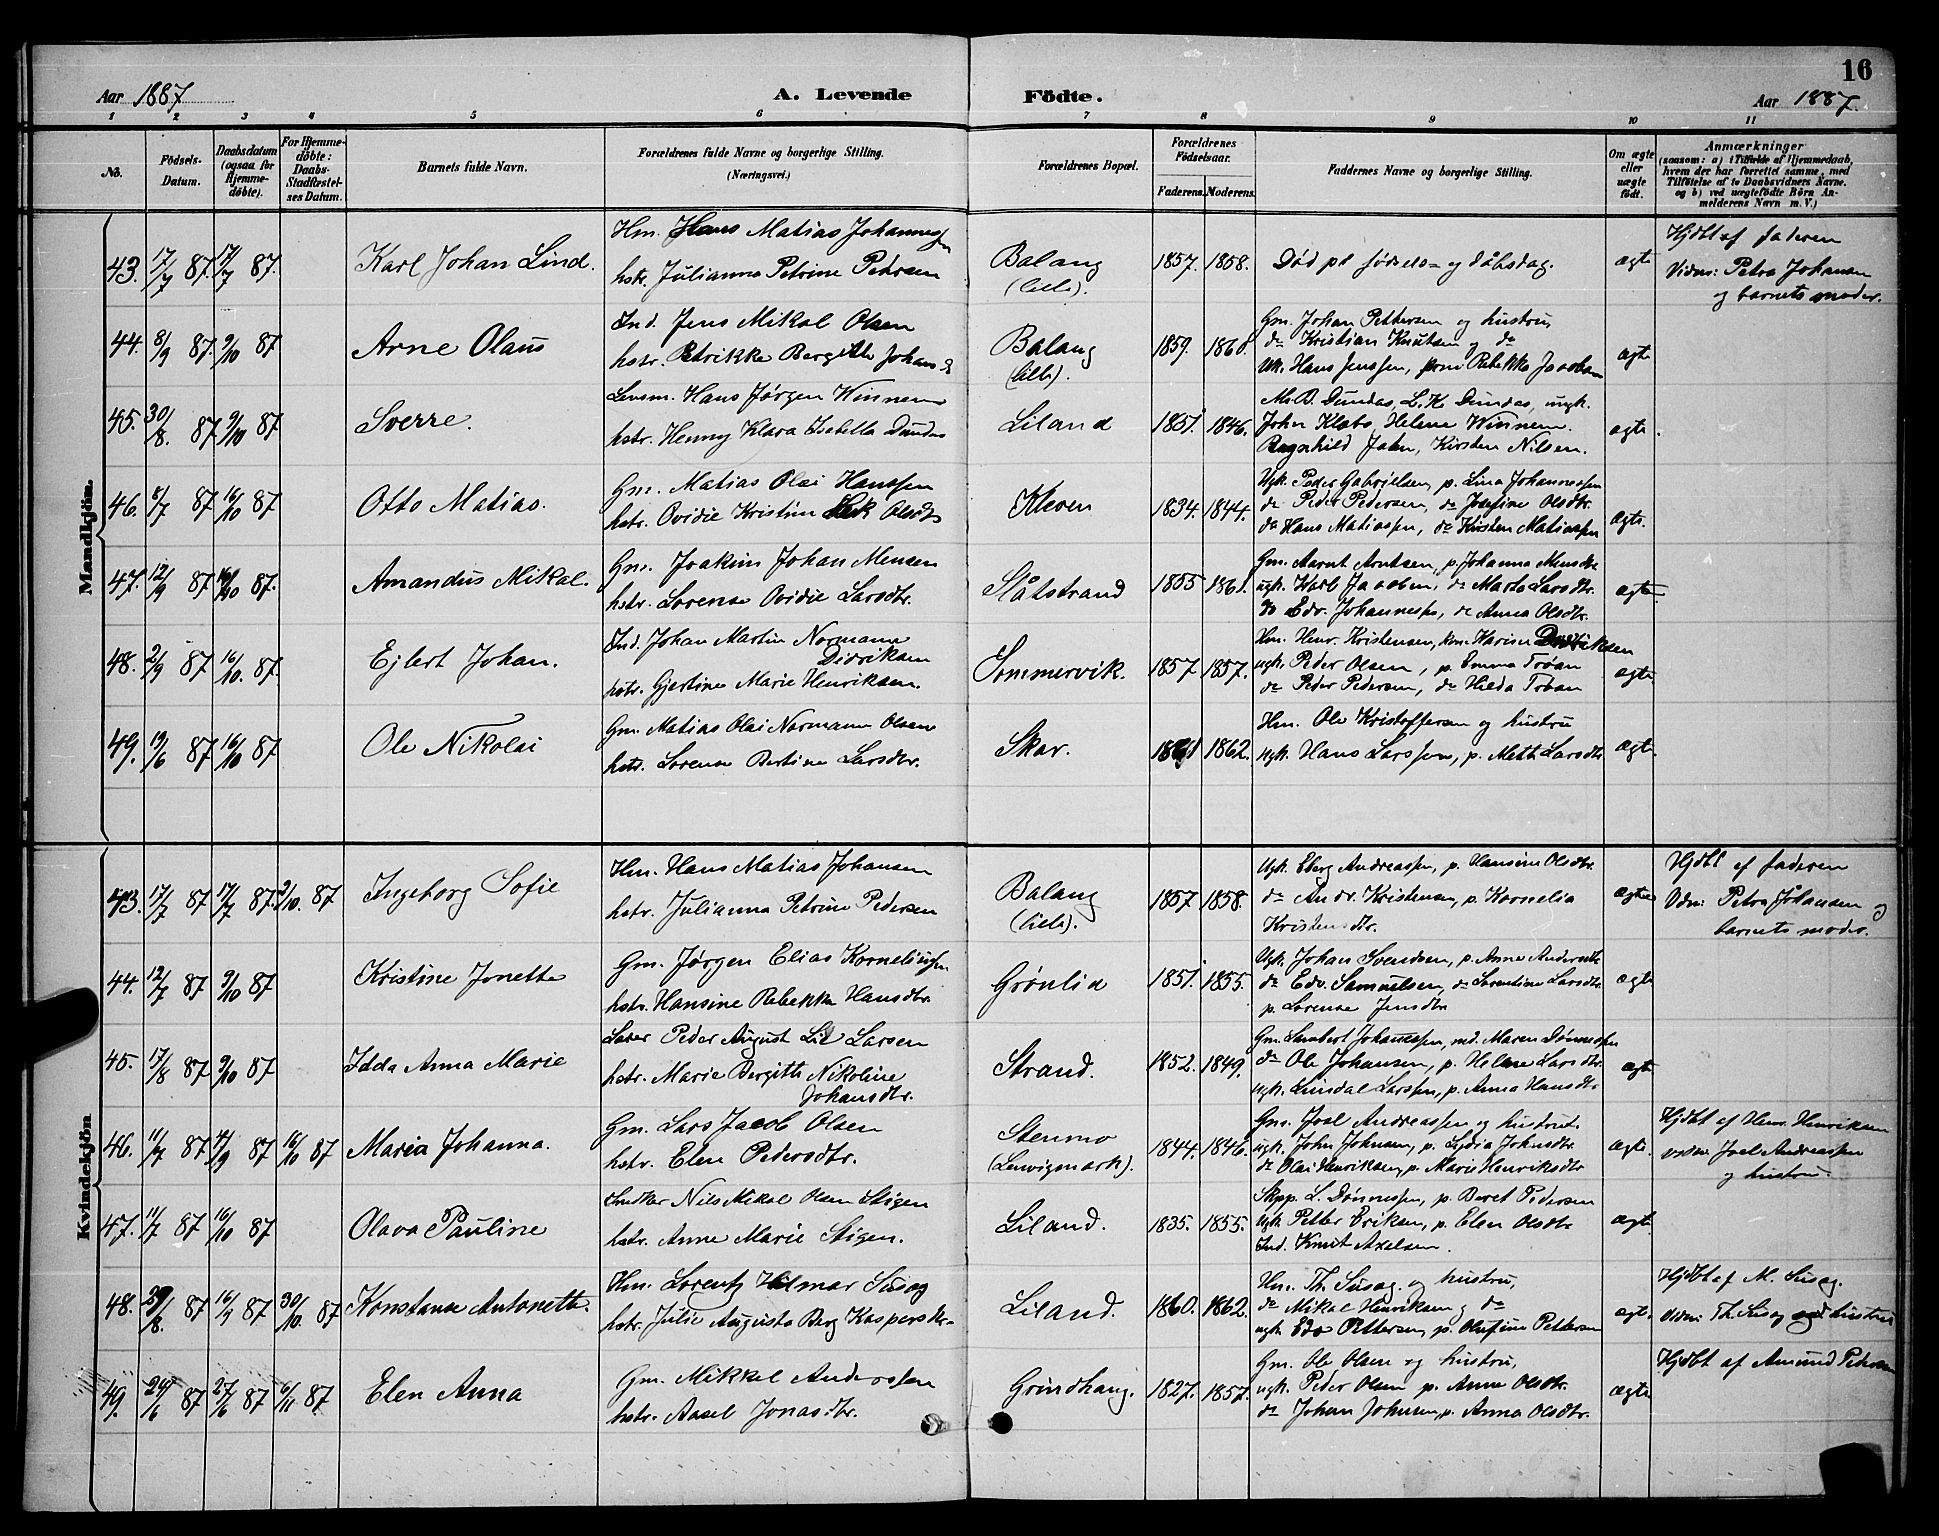 16
Aar 1887 A. Levende Födte. Aar 1887.
1 2 3 4 5 6 7 8 9 10 11
No. Födsels-Datum. Daabsdatum (ogsaa for Hjemmedöbte). For Hjemmedöbte: Daabs-Stadfæstelses Datum. Barnets fulde Navn. Forældrenes fulde Navne og borgerlige Stilling. (Næringsvei.) Forældrenes Bopæl. Forældrenes Födselsaar. Faderens. Moderens. Faddernes Navne og borgerlige Stilling. Om ægte eller uægte født. Anmærkninger (saasom: a) i Tilfælde af Hjemmedaab, hvem der har forrettet samme, med Tilföielse af to Daabsvidners Navne. og b) ved uægtefödte Börn Anmelderens Navn m. V.)
Mandkjön.
43. 17/7 87. 17/7 87. Karl Johan Lind. Hm. Hans Matias Johannessen
hstr. Julianna Petrine Pedersen
Balang (lille). 1857. 1858. Död på fødsels- og dåbsdag. ægte
Hjdbt af faderen
Vidner: Petra Johansen
og barnets moder.
44. 8/9 87. 9/10 87 Arne Olaus Ind. Jens Mikal Olsen
hstr. Petrikke Bergitte Johansd.
Balang (lille). 1859. 1860.
Gm. Johan Pettersen og hustru,
do Kristian Knutsen og do
Uk. Hans Jenssen, pine Rebekka Jacobsen
ægte
45. 30/8. 87 9/10 87 Sverre. Lensm. Hans Jørgen Winnem
hstr. Henny Klara Isabella Dundas
Liland 1851. 1846.
M. B. Dundas, L. K. Dundas, ungk.
John Klæbo, Helene Winnem.
Ragnhild Jahn, Kirsten Nilsen.
ægte.
46. 8/7 87 16/10 87 Otto Matias. Gm. Matias Olai Hanssen
hstr. Ovidie Kristine Olsdtr
Kleven 1834. 1844.
Ugk. Peder Gabrielsen, p. Lina Johannessen
do Peder Pedersen, do Josefine Olsdtr.
do Hans Matiassen, do Kirsten Matiassen
ægte.
47. 12/9 87 16/10 87. Amandus Mikal. Gm. Joakim Johan Mensen
hstr. Lorense Ovidie Larsdtr.
Slåtstrand 1855 1861.
Gm. Aarnt Arntsen, p. Johanna Mensdtr
ugk. Karl Jacobsen, do Marta Larsdtr.
do Edv. Johannessen, do Anna Olsdtr.
ægte.
48. 2/9 87 16/10 87. Ejlert Johan. Ind. Johan Martin Normann
Didriksen
hstr. Gjertine Marie Henriksen.
Sommervik. 1857 1857.
Hm. Henr. Kristensen, kone Karen Didriksen
ugk. Peder Olsen, p. Emma Troan
do Peder Pedersen, do Hilda Troan
ægte.
49. 19/6 87 16/10 87 Ole Nikolai Gm. Matias Olai Normann Olsen
hstr. Lorense Bertine Larsdtr.
Skar. 1861 1862.
Hm. Ole Kristoffersen og hustru
ugk. Hans Larssen, p. Mette Larsdtr
ægte.
Kvindekjön
43. 17/7 87 17/7 87. 2/10. 87 Ingeborg Sofie Hm. Hans Matias Johansen
hstr. Julianna Petrine Pedersen
Balang (lille). 1857 1858.
Ugk. Eberg Andreassen, p. Hansine Olsdtr.
do Andr. Kristensen, p. Kornelia
Kristensdtr.
ægte
Hjdbt af faderen
Vidn: Petra Johansen og
barnets moder.
44. 12/7 87 9/10 87 Kristine Jonette Gm. Jørgen Elias Korneliussen
hstr. Hansine Rebekka Hansdtr.
Grønlid 1851. 1855.
Ugk. Johan Svendsen, p. Anne Andersdtr
do Edv. Samuelsen, do Lorentine Larsdtr.
p. Lorense Jensdtr
ægte
45. 17/8 87 9/10 87 Idda Anna Marie Lærer Peder August Larsen
hstr. Marie Bergitte Nikoline
Johansdtr.
Strand. 1852. 1849.
Gm. Lambert Johanessen, md. Maren Dønnessen
do Ole Johansen, p. Helene Larsdtr.
ugk. Lindal Larssen, p. Anna Hansdtr
ægte
46. 11/7 87 4/9 87 16/10 87 Maria Johanna. Gm. Lars Jacob Olsen
hstr. Elen Pedersdtr.
Stenmo (Lenvigmark). 1844. 1846.
Gm. Joel Andreassen og hustru.
ugk. John Johnsen, p. Lydia Johnsdtr
do Olai Henriksen, p. Marie Henriksdtr
ægte.
Hjdbt af Henr. Henriksen
vidn: Joel Andreassen
og hustru.
47. 11/7 87 16/10 87 Olava Pauline Snedker Nils Mikal Olsen Stigen
hstr. Anne Marie Stigen.
Liland. 1835. 1855.
Skpp. L. Dønnessen, p. Beret Pedersen
ugk. Petter Eriksen, p. Elen Olsdtr
Ind. Knut Axelsen.
ægte
48. 29/8. 87 16/9 87 30/10. 87 Konstanse Antonette. Hm. Lorentz Hilmar Susag
hstr. Julie Augusta Berg Kaspersdtr.
Liland. 1860. 1862.
Hm. Th. Susag og hustru,
do Mikal Henriksen og do
ugk. Edv Pettersen, p. Olufine Pettersen
ægte.
Hjdbt af M. Susag.
Vidn: Th. Susag og hustru
49. 24/6 87 27/6 87 6/11 87. Elen Anna Gm. Mikkel Anderssen
hstr. Aasel Jonasdtr.
Grindhaug. 1827. 1857.
Gm. Ole Olsen og hustru,
ugk. Peder Olsen p. Anne Olsdtr.
do Johan Johnsen, p. Anna Olsdtr.
ægte
Hjdbt af Amund Petersen